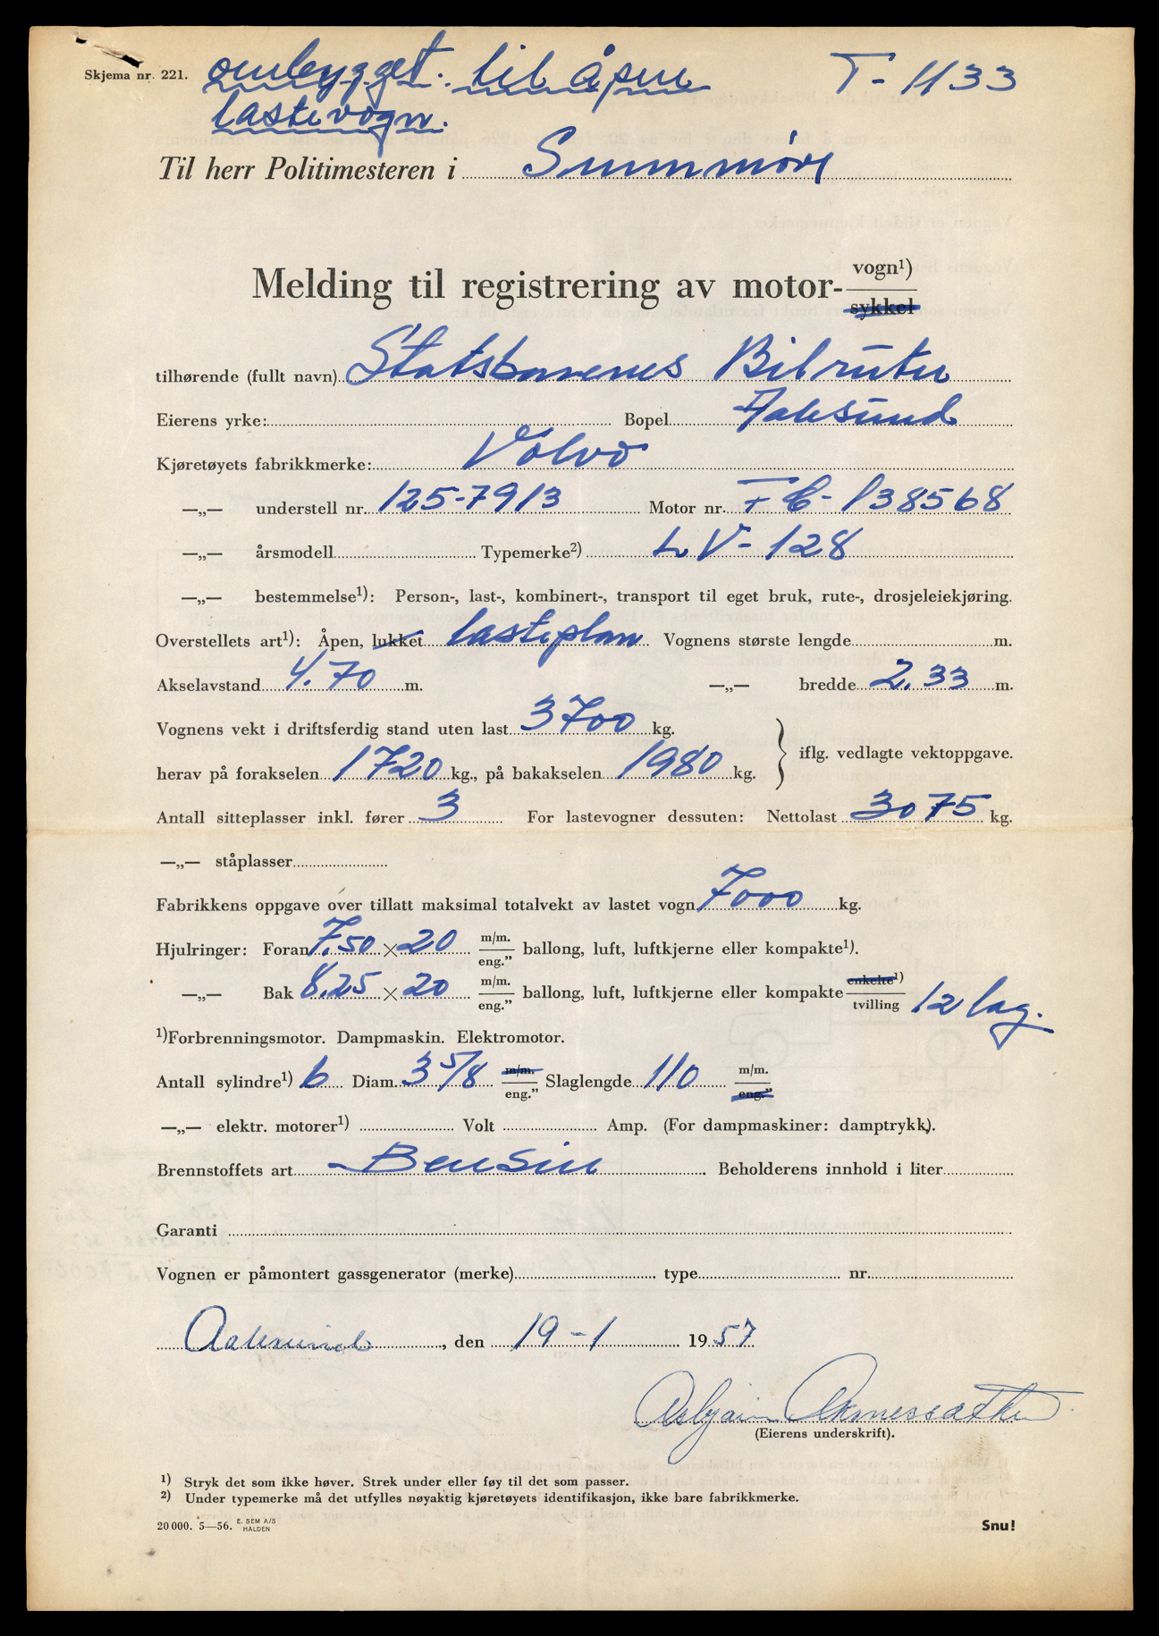 Skjema nr. 221.
ombygget til åpen T-1133
lastevogn.
Til herr Politimesteren i Sunnmøre
Melding til registrering av motor-vogn¹)
sykkel
tilhørende (fullt navn) Statsbanenes Bilruter
Eierens yrke: Bopel Aalesund
Kjøretøyets fabrikkmerke: Volvo
—„— understell nr. 125-7913 Motor nr. FC-138568
—„— årsmodell Typemerke²) LV-128
—„— bestemmelse¹): Person-, last-, kombinert-, transport til eget bruk, rute-, drosjeleiekjøring.
Overstellets art¹): Åpen, lukket lasteplan Vognens største lengde m.
Akselavstand 4.70 m. —„— bredde 2.33 m.
Vognens vekt i driftsferdig stand uten last 3700 kg.
iflg. vedlagte vektoppgave.
herav på forakselen 1720 kg., på bakakselen 1980 kg.
Antall sitteplasser inkl. fører 3 For lastevogner dessuten: Nettolast 3075 kg.
—„— ståplasser
Fabrikkens oppgave over tillatt maksimal totalvekt av lastet vogn 7000 kg.
Hjulringer: Foran 7.50 × 20 m/m. eng." ballong, luft, luftkjerne eller kompakte¹).
—„— Bak 8.25 × 20 m/m. eng." ballong, luft, luftkjerne eller kompakte enkelte¹) tvilling 12 lag.
¹)Forbrenningsmotor. Dampmaskin. Elektromotor.
Antall sylindre¹) 6 Diam. 3 5/8 m/m. eng." Slaglengde 110 m/m. eng."
—„— elektr. motorer¹) Volt Amp. (For dampmaskiner: damptrykk).
Brennstoffets art Bensin Beholderens innhold i liter
Garanti
Vognen er påmontert gassgenerator (merke) type nr.
Aalesund, den 19-1 1957
Asbjørn
(Eierens underskrift).
¹) Stryk det som ikke høver. Strek under eller føy til det som passer.
²) Under typemerke må det utfylles nøyaktig kjøretøyets identifikasjon, ikke bare fabrikkmerke.
20 000. 5—56. E. SEM A/S HALDEN Snu!